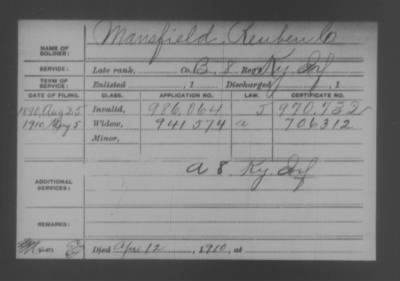 NAME OF SOLDIER: Mansfield, Reuben Co
SERVICE: Late rank, Co. B, 8 Reg't Ky. Inf
TERM OF SERVICE: Enlisted , 1 Discharged , 1
DATE OF FILING. CLASS. APPLICATION NO. LAW. CERTIFICATE NO.
1890, Aug 25 Invalid, 986,064 J 970,732
1910 May 5 Widow, 941,574 a 706312
Minor,
ADDITIONAL SERVICES: a 8 Ky. Inf
REMARKS:
Died Apr 12, 1910, at